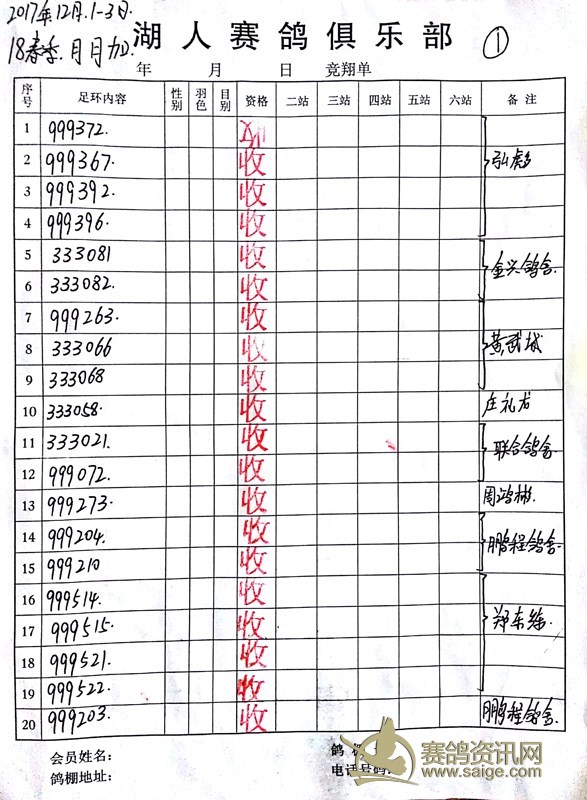 2017年12月.1-3日.
18春季.月月加
湖人赛鸽俱乐部
①
年 月 日 竞翔单
序号 足环内容 性别 羽色 目别 资格 二站 三站 四站 五站 六站 备注
1 999372.
2 999367. 收 弘彪
3 999392. 收
4 999396. 收
5 333081 收 金兴鸽舍
6 333082. 收
7 999263. 收
8 333066 收 黄武城
9 333068 收
10 333058. 收 庄礼龙
11 333021. 收 联合鸽舍
12 999072. 收
13 999273. 收 周鸿彬.
14 999204. 收 鹏程鸽舍.
15 999210 收
16 999514. 收
17 999515. 收 郑东
18 999521. 收
19 999522. 收
20 999203. 收 鹏程鸽舍.
会员姓名:
鸽棚地址:
鸽
电话号码:
赛鸽资讯网
www.saige.com